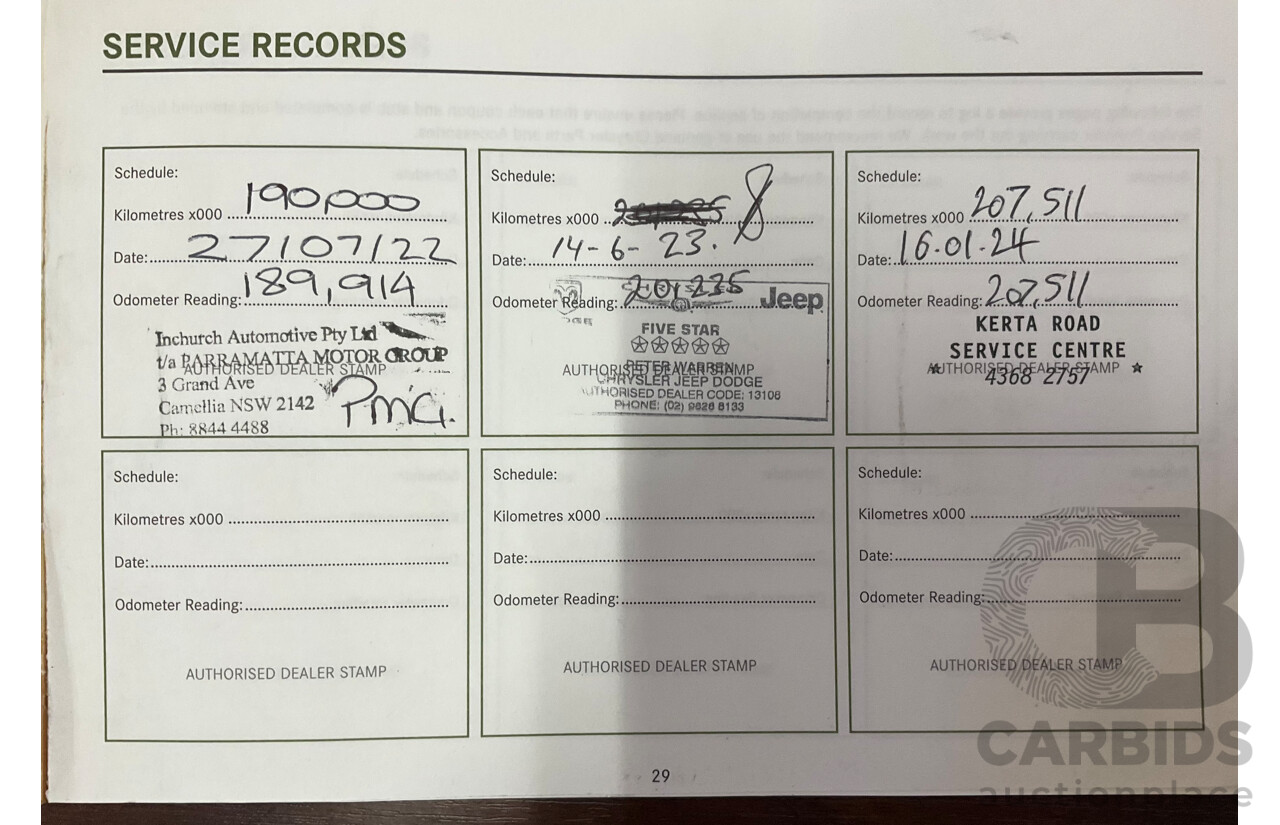 SERVICE RECORDS
Schedule:
Kilometres x000 190,000
Date: 27/07/22
Odometer Reading: 189,914
Inchurch Automotive Pty Ltd
t/a PARRAMATTA MOTOR GROUP
AUTHORISED DEALER STAMP
3 Grand Ave
Camellia NSW 2142
PMG.
Ph: 8844 4488
Schedule:
Kilometres x000
Date: 14-6-23.
Odometer Reading: 201,235
Jeep
FIVE STAR
PETER WARREN
AUTHORISED DEALER STAMP
CHRYSLER JEEP DODGE
AUTHORISED DEALER CODE: 13106
PHONE: (02) 9828 8133
Schedule:
Kilometres x000 207,511
Date: 16-01-24
Odometer Reading: 207,511
KERTA ROAD
SERVICE CENTRE
AUTHORISED DEALER STAMP
4368 2757
Schedule:
Kilometres x000
Date:
Odometer Reading:
AUTHORISED DEALER STAMP
Schedule:
Kilometres x000
Date:
Odometer Reading:
AUTHORISED DEALER STAMP
Schedule:
Kilometres x000
Date:
Odometer Reading:
AUTHORISED DEALER STAMP
29
CB
CARBIDS
auctionplace